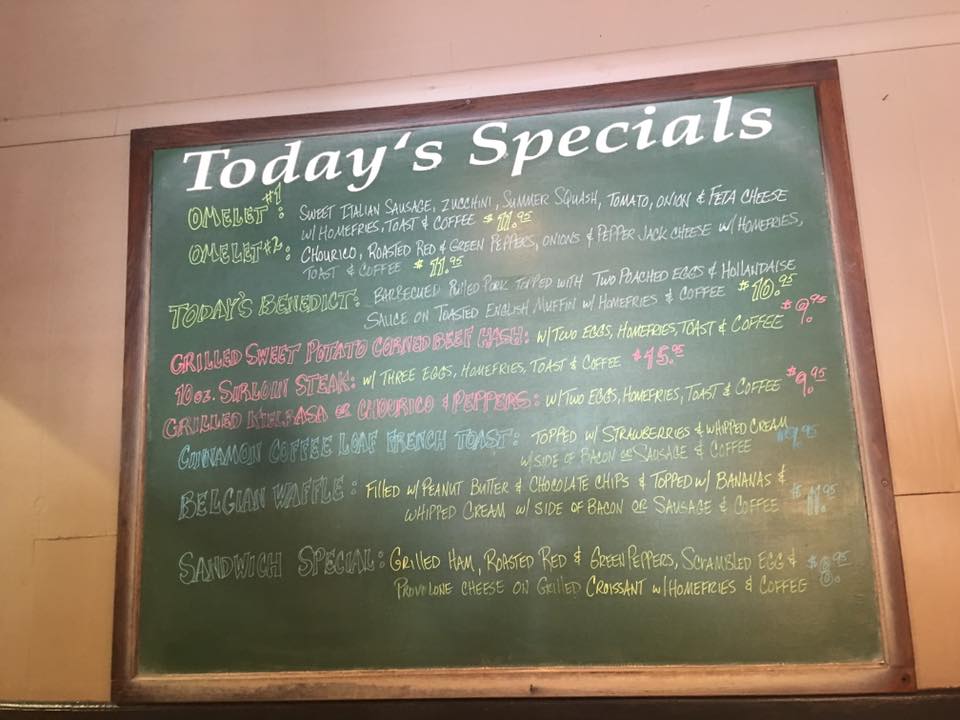 Today's Specials
OMELET #1: SWEET ITALIAN SAUSAGE, ZUCCHINI, SUMMER SQUASH, TOMATO, ONION & FETA CHEESE
W/ HOMEFRIES, TOAST & COFFEE $11.95
OMELET #2: CHOURICO, ROASTED RED & GREEN PEPPERS, ONIONS & PEPPER JACK CHEESE W/ HOMEFRIES,
TOAST & COFFEE $11.95
TODAY'S BENEDICT: BARBECUED PULLED PORK TOPPED WITH TWO POACHED EGGS & HOLLANDAISE
SAUCE ON TOASTED ENGLISH MUFFIN W/ HOMEFRIES & COFFEE $10.95
GRILLED SWEET POTATO CORNED BEEF HASH: W/ TWO EGGS, HOMEFRIES, TOAST & COFFEE $9.95
10 oz. SIRLOIN STEAK: W/ THREE EGGS, HOMEFRIES, TOAST & COFFEE $15.95
GRILLED KIELBASA OR CHOURICO & PEPPERS: W/ TWO EGGS, HOMEFRIES, TOAST & COFFEE $9.95
CINNAMON COFFEE LOAF FRENCH TOAST: TOPPED W/ STRAWBERRIES & WHIPPED CREAM
W/ SIDE OF BACON OR SAUSAGE & COFFEE $9.95
BELGIAN WAFFLE: FILLED W/ PEANUT BUTTER & CHOCOLATE CHIPS & TOPPED W/ BANANAS &
WHIPPED CREAM W/ SIDE OF BACON OR SAUSAGE & COFFEE $11.95
SANDWICH SPECIAL: GRILLED HAM, ROASTED RED & GREEN PEPPERS, SCRAMBLED EGG &
PROVOLONE CHEESE ON GRILLED CROISSANT W/ HOMEFRIES & COFFEE $8.95